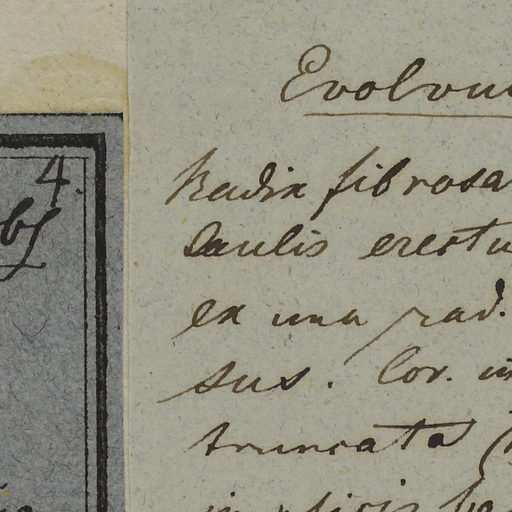 4.
Evolvu
Radix fibrosa
Caulis erectu
ex una rad.
sus. Cor. in
truncata